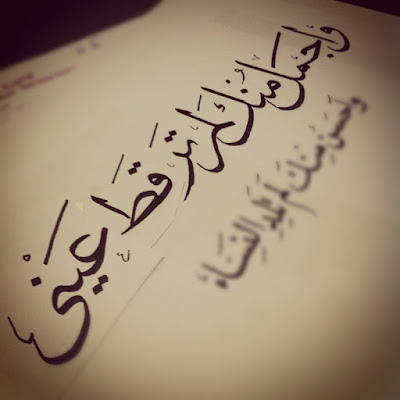 وأجمل منك لم تر قط عيني
وأحسن منك لم تلد النساء